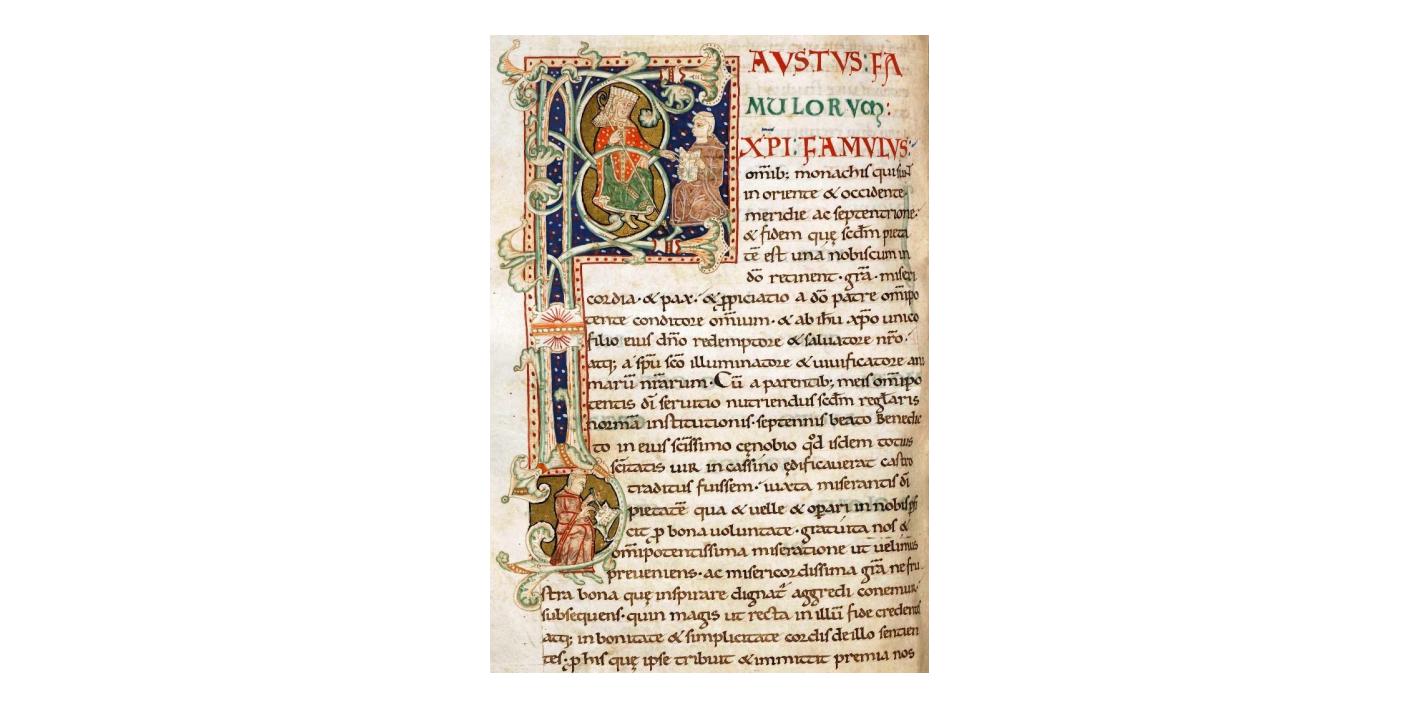 FAUSTUS: FA
MULORUM:
XPI: FAMULUS:
om̄ib; monachis qui sunt
in oriente & occidente
meridie ac septentrione·
& fidem quę scdm̄ pieta
tē est una nobiscum in
dō retinent· grā· miseri
cordia· & pax· & ꝓpiciatio a dō patre om̄ipo
tente conditore om̄ium· & ab ihū xp̄o unico
filio eius dn̄o redemptore & salvatore nr̄o·
atq; a spū scō illuminatore & vivificatore ani
marū nr̄arum· Cū a parentib; meis om̄ipo
tentis dī servitio nutriendus scdm̄ regłaris
normā institutionis· septennis beato Benedic
to in eius scīssimo cęnobio qd̄ isdem totius
scītatis vir in cassino ędificaverat castro
traditus fuissem· iuxta miserantis dī
pietatē qua & velle & oꝑari in nobis ꝑfi
cit ꝓ bona voluntate· gratuita nos &
om̄ipotentissima miseratione ut velimus
preveniens· ac misericordissima grā ne fru
stra bona quę inspirare dignat᷑ aggredi conemur·
subsequens· quin magis ut recta in illū fide credentes
atq; in bonitate & simplicitate cordis de illo sentien
tes· ꝓ his quę ipse tribuit & immittit premia nos